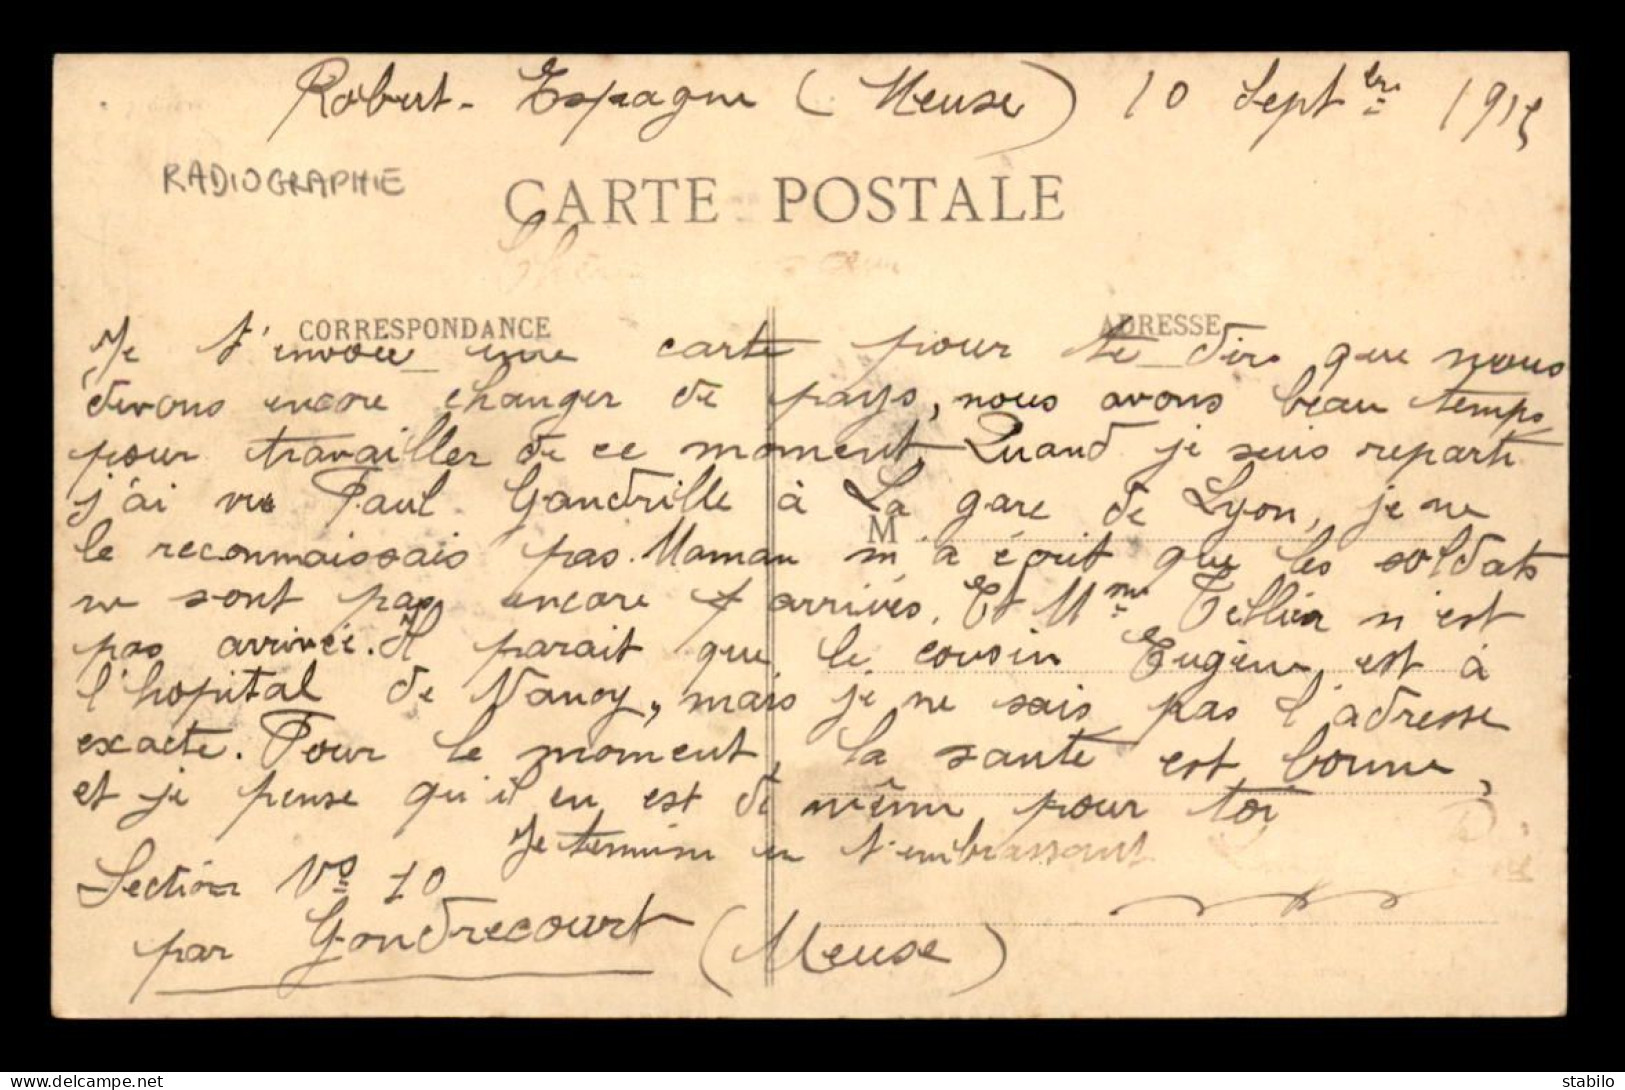 Robert-Espagne (Meuse) 10 Septbre 1915
RADIOGRAPHIE
CARTE POSTALE
CORRESPONDANCE
ADRESSE
Je t'envoie une carte pour te dire que nous
devons encore changer de pays, nous avons beau temps
pour travailler de ce moment, Quand je suis reparti
j'ai vu Paul Gandrille à La gare de Lyon, je ne
M
le reconnaissais pas. Maman m'a écrit que les soldats
ne sont pas encore arrivés. Et Mme Tellier n'est
pas arrivée. Il parait que le cousin Eugène est à
l'hopital de Nancy, mais je ne sais pas l'adresse
exacte. Pour le moment, la santé est bonne,
et je pense qu'il en est de même pour toi
Je termine en t'embrassant
Section No 10
par Gondrecourt (Meuse)